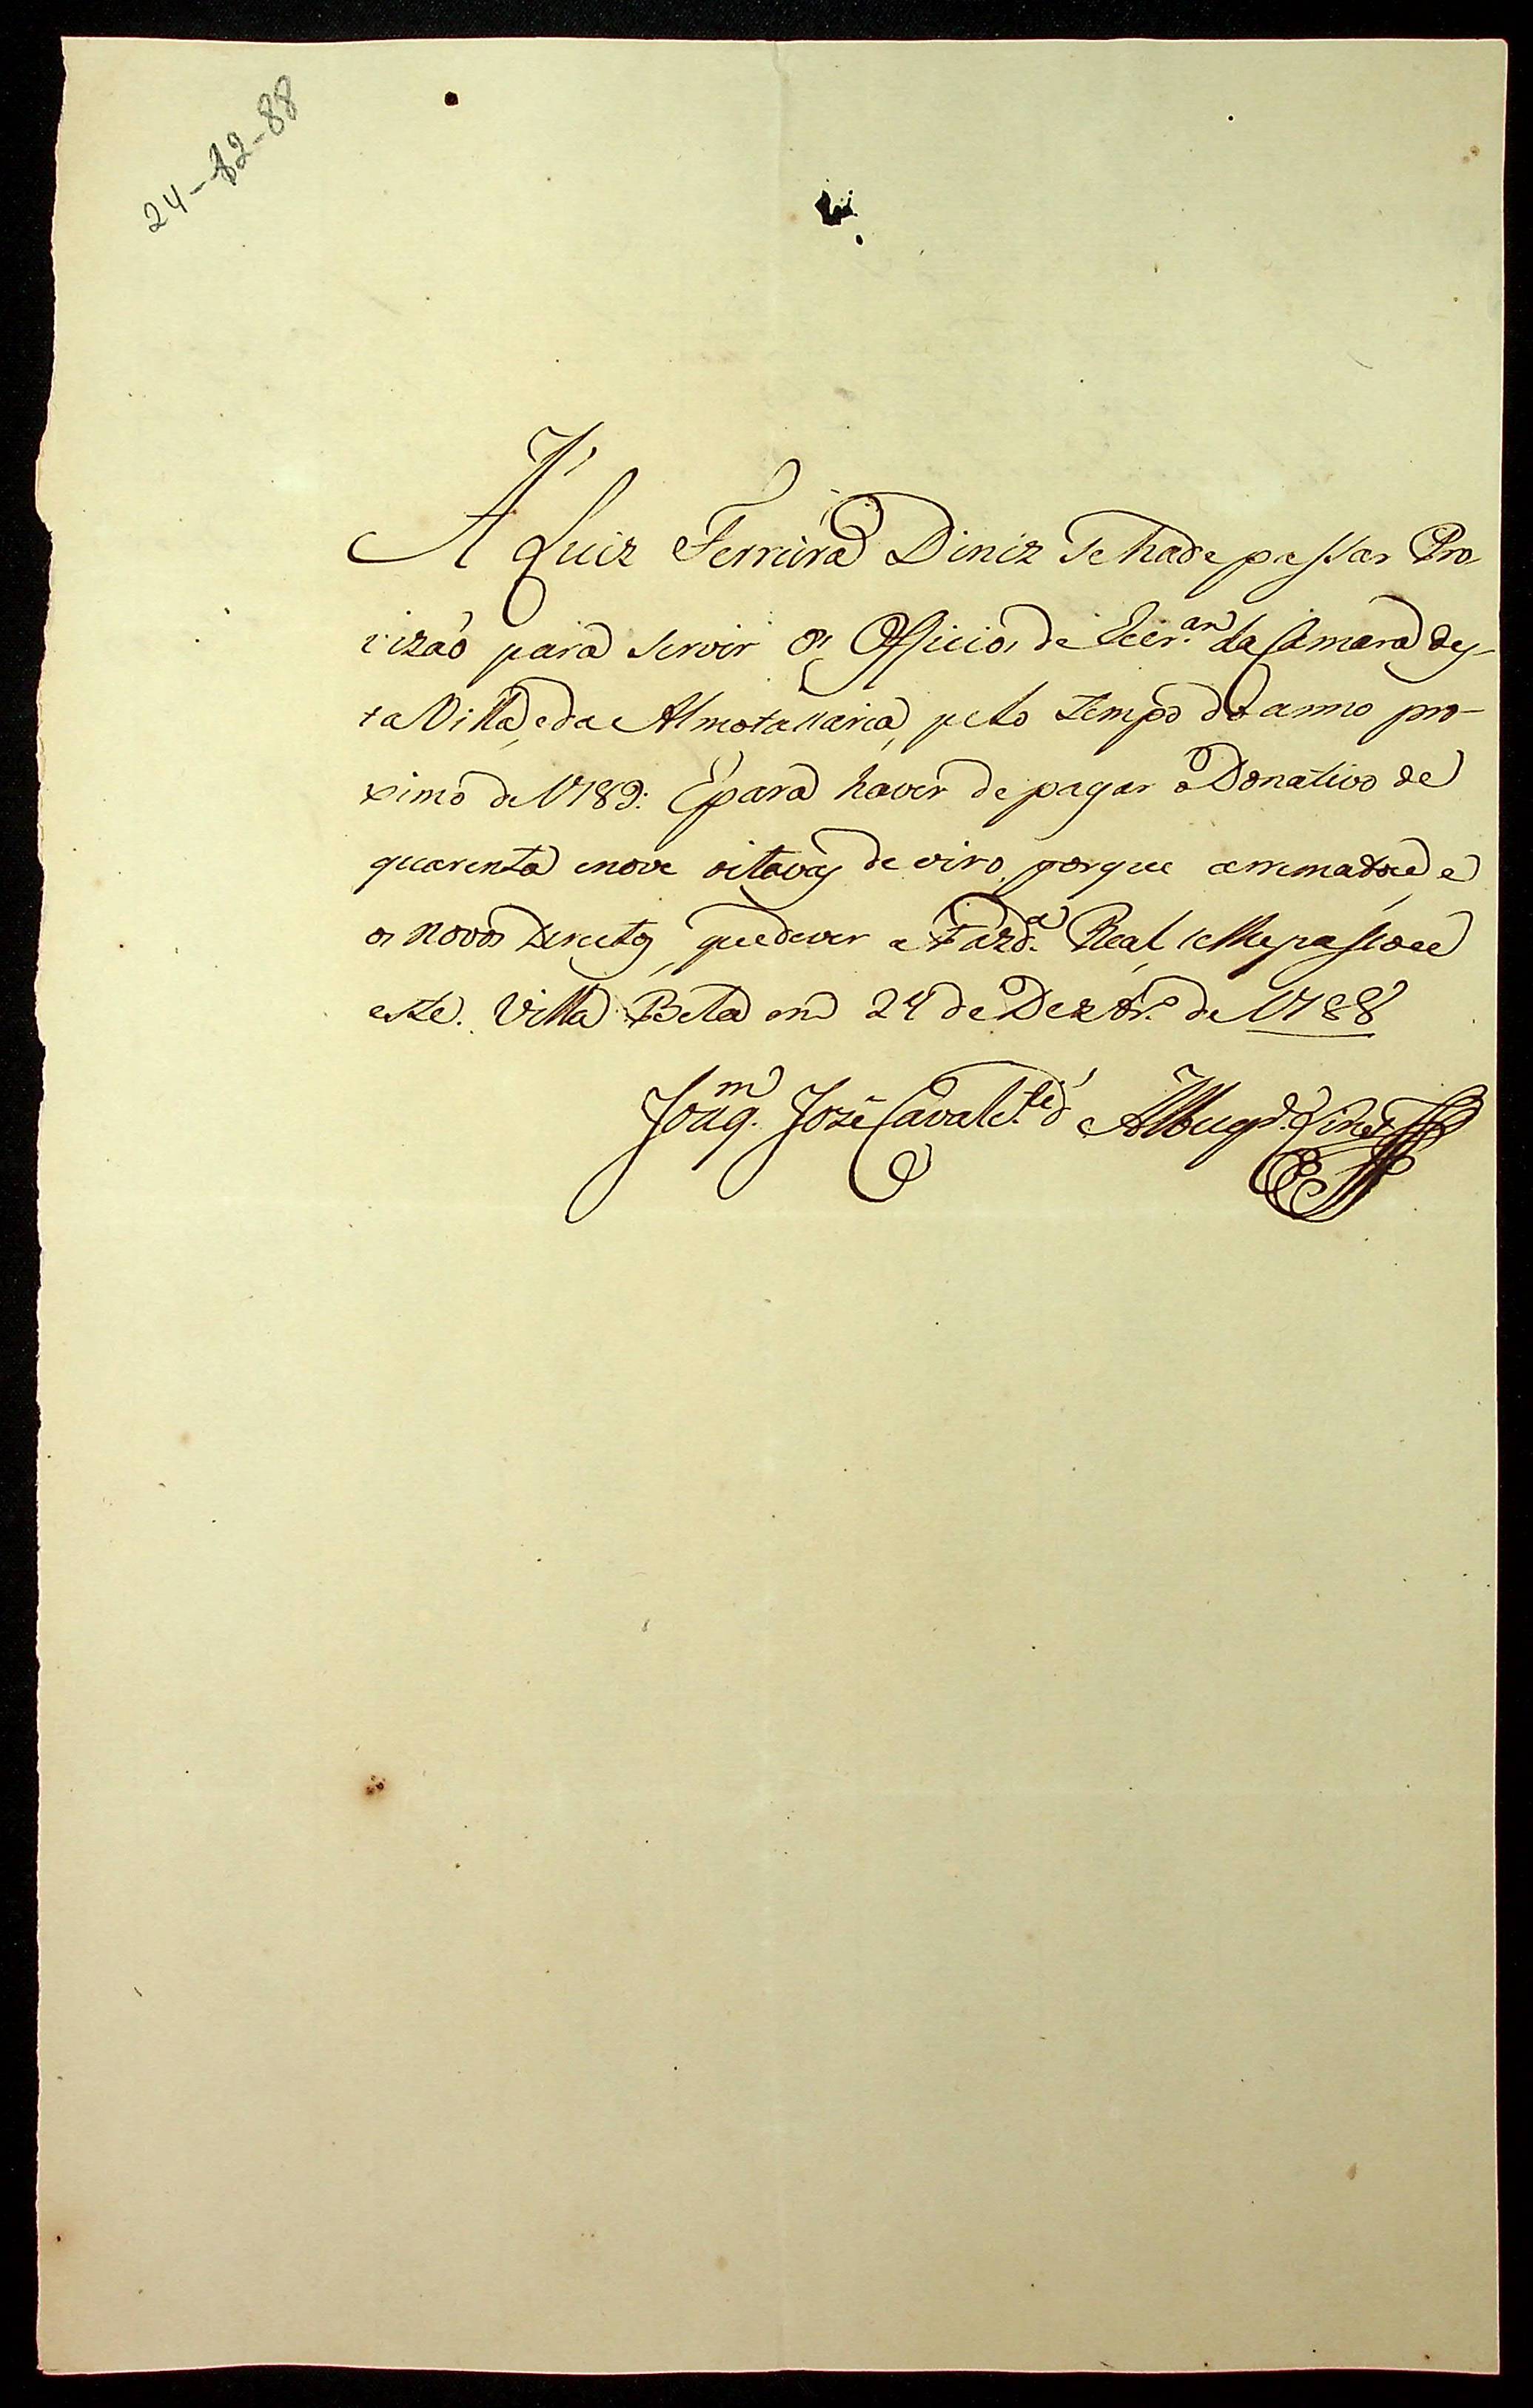 24-12-88
A Luiz Ferreira Diniz se hade passar Pro
vizaõ para servir os Officios de Escr.am da Camara des-
ta Villa, e da Almotassaria, pelo tempo do anno pro-
ximo de 1789: E para haver de pagar o Donativo de
quarenta e nove oitavas de oiro, porque arrematou, e
os novos Direitos, que dever a Fazd.a Real, se lhe passou
este. Villa Bella em 24 de Dezbr.o de 1788
Joaq.m José Cavalc.te d' Albuqr.e Lins